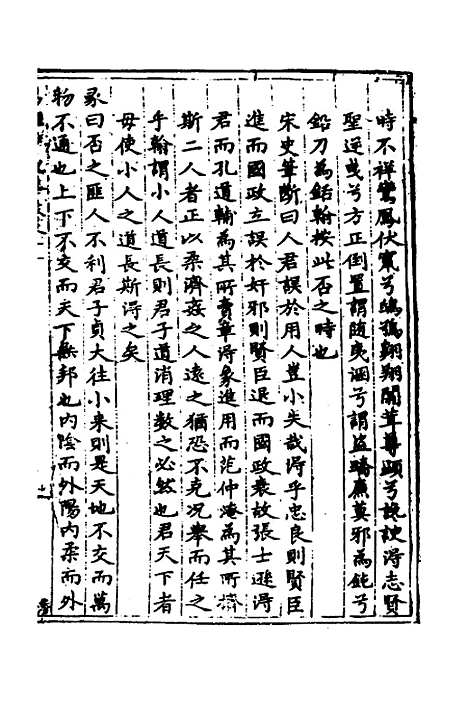 時不祥鸞鳳伏竄兮鴟鴞翶翔闒茸尊顯兮讒諛得志賢
聖逆曳兮方正倒置謂随夷溷兮謂盗蹠廉莫邪為鈍兮
鉛刀為銛翰按此否之時也
宋史筆斷曰人君誤於用人豈小失哉得乎忠良則賢臣
進而國政立誤於奸邪則賢臣退而國政衰故張士遜得
君而孔道輔為其所賣章得象進用而范仲淹為其所擠
斯二人者正以柔濟姦之人遠之猶恐不克况舉而任之
乎翰謂小人道長則君子道消理數之必然也君天下者
毋使小人之道長斯得之矣
彖曰否之匪人不利君子貞大往小来則是天地不交而萬
物不通也上下不交而天下無邦也内陰而外陽内柔而外